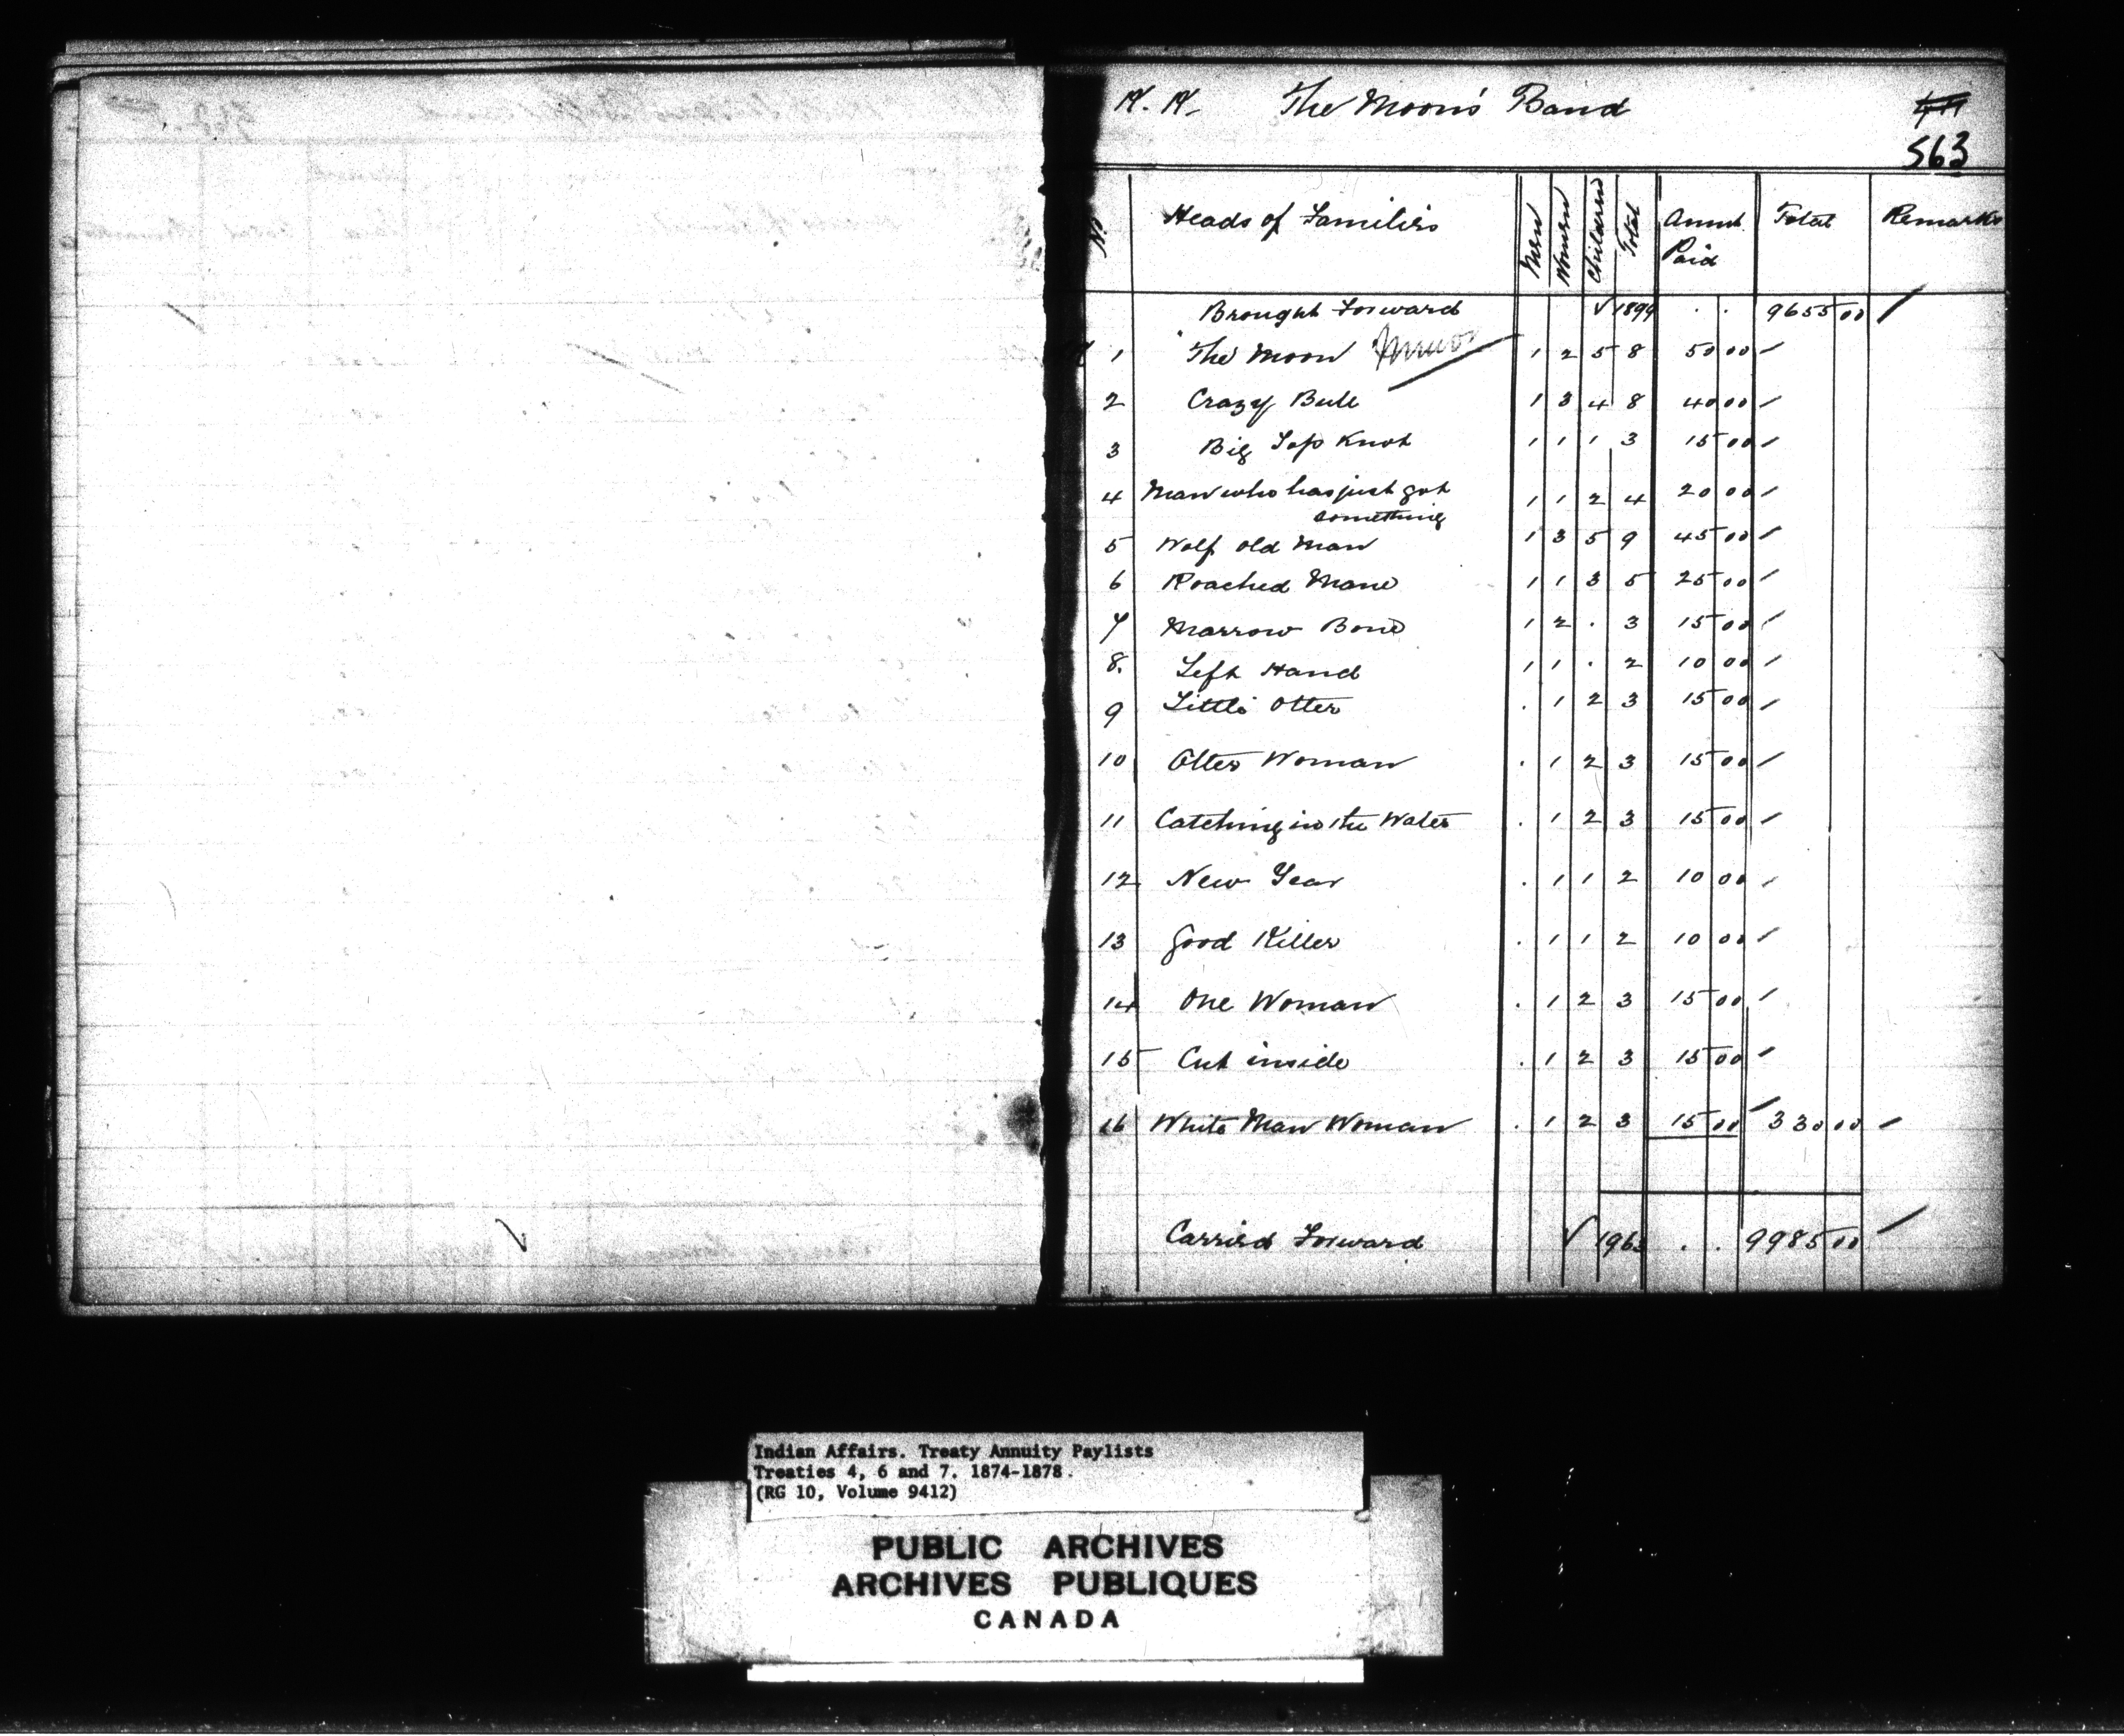 The Moon's Band
563
No. Heads of Families Men Women Children Total Amnt Paid Total Remarks
Brought Forward √ 1899 . . 9655 00 /
1 The Moon 1 2 5 8 50 00 /
2 Crazy Bull 1 3 4 8 40 00 /
3 Big Top Knot 1 1 1 3 15 00 /
4 Man who has just got something 1 1 2 4 20 00 /
5 Wolf old Man 1 3 5 9 45 00 /
6 Roached Mane 1 1 3 5 25 00 /
7 Marrow Bone 1 2 . 3 15 00 /
8. Left Hand 1 1 . 2 10 00 /
9 Little Otter . 1 2 3 15 00 /
10 Otter Woman . 1 2 3 15 00 /
11 Catching in the Water . 1 2 3 15 00 /
12 New Year . 1 1 2 10 00 /
13 Good Killer . 1 1 2 10 00 /
14 One Woman . 1 2 3 15 00 /
15 Cut inside . 1 2 3 15 00 /
16 White Man Woman . 1 2 3 15 00 / 330 00 /
Carried Forward √ 1963 . . 9985 00 /
Indian Affairs. Treaty Annuity Paylists
Treaties 4, 6 and 7. 1874-1878.
(RG 10, Volume 9412)
PUBLIC ARCHIVES
ARCHIVES PUBLIQUES
CANADA